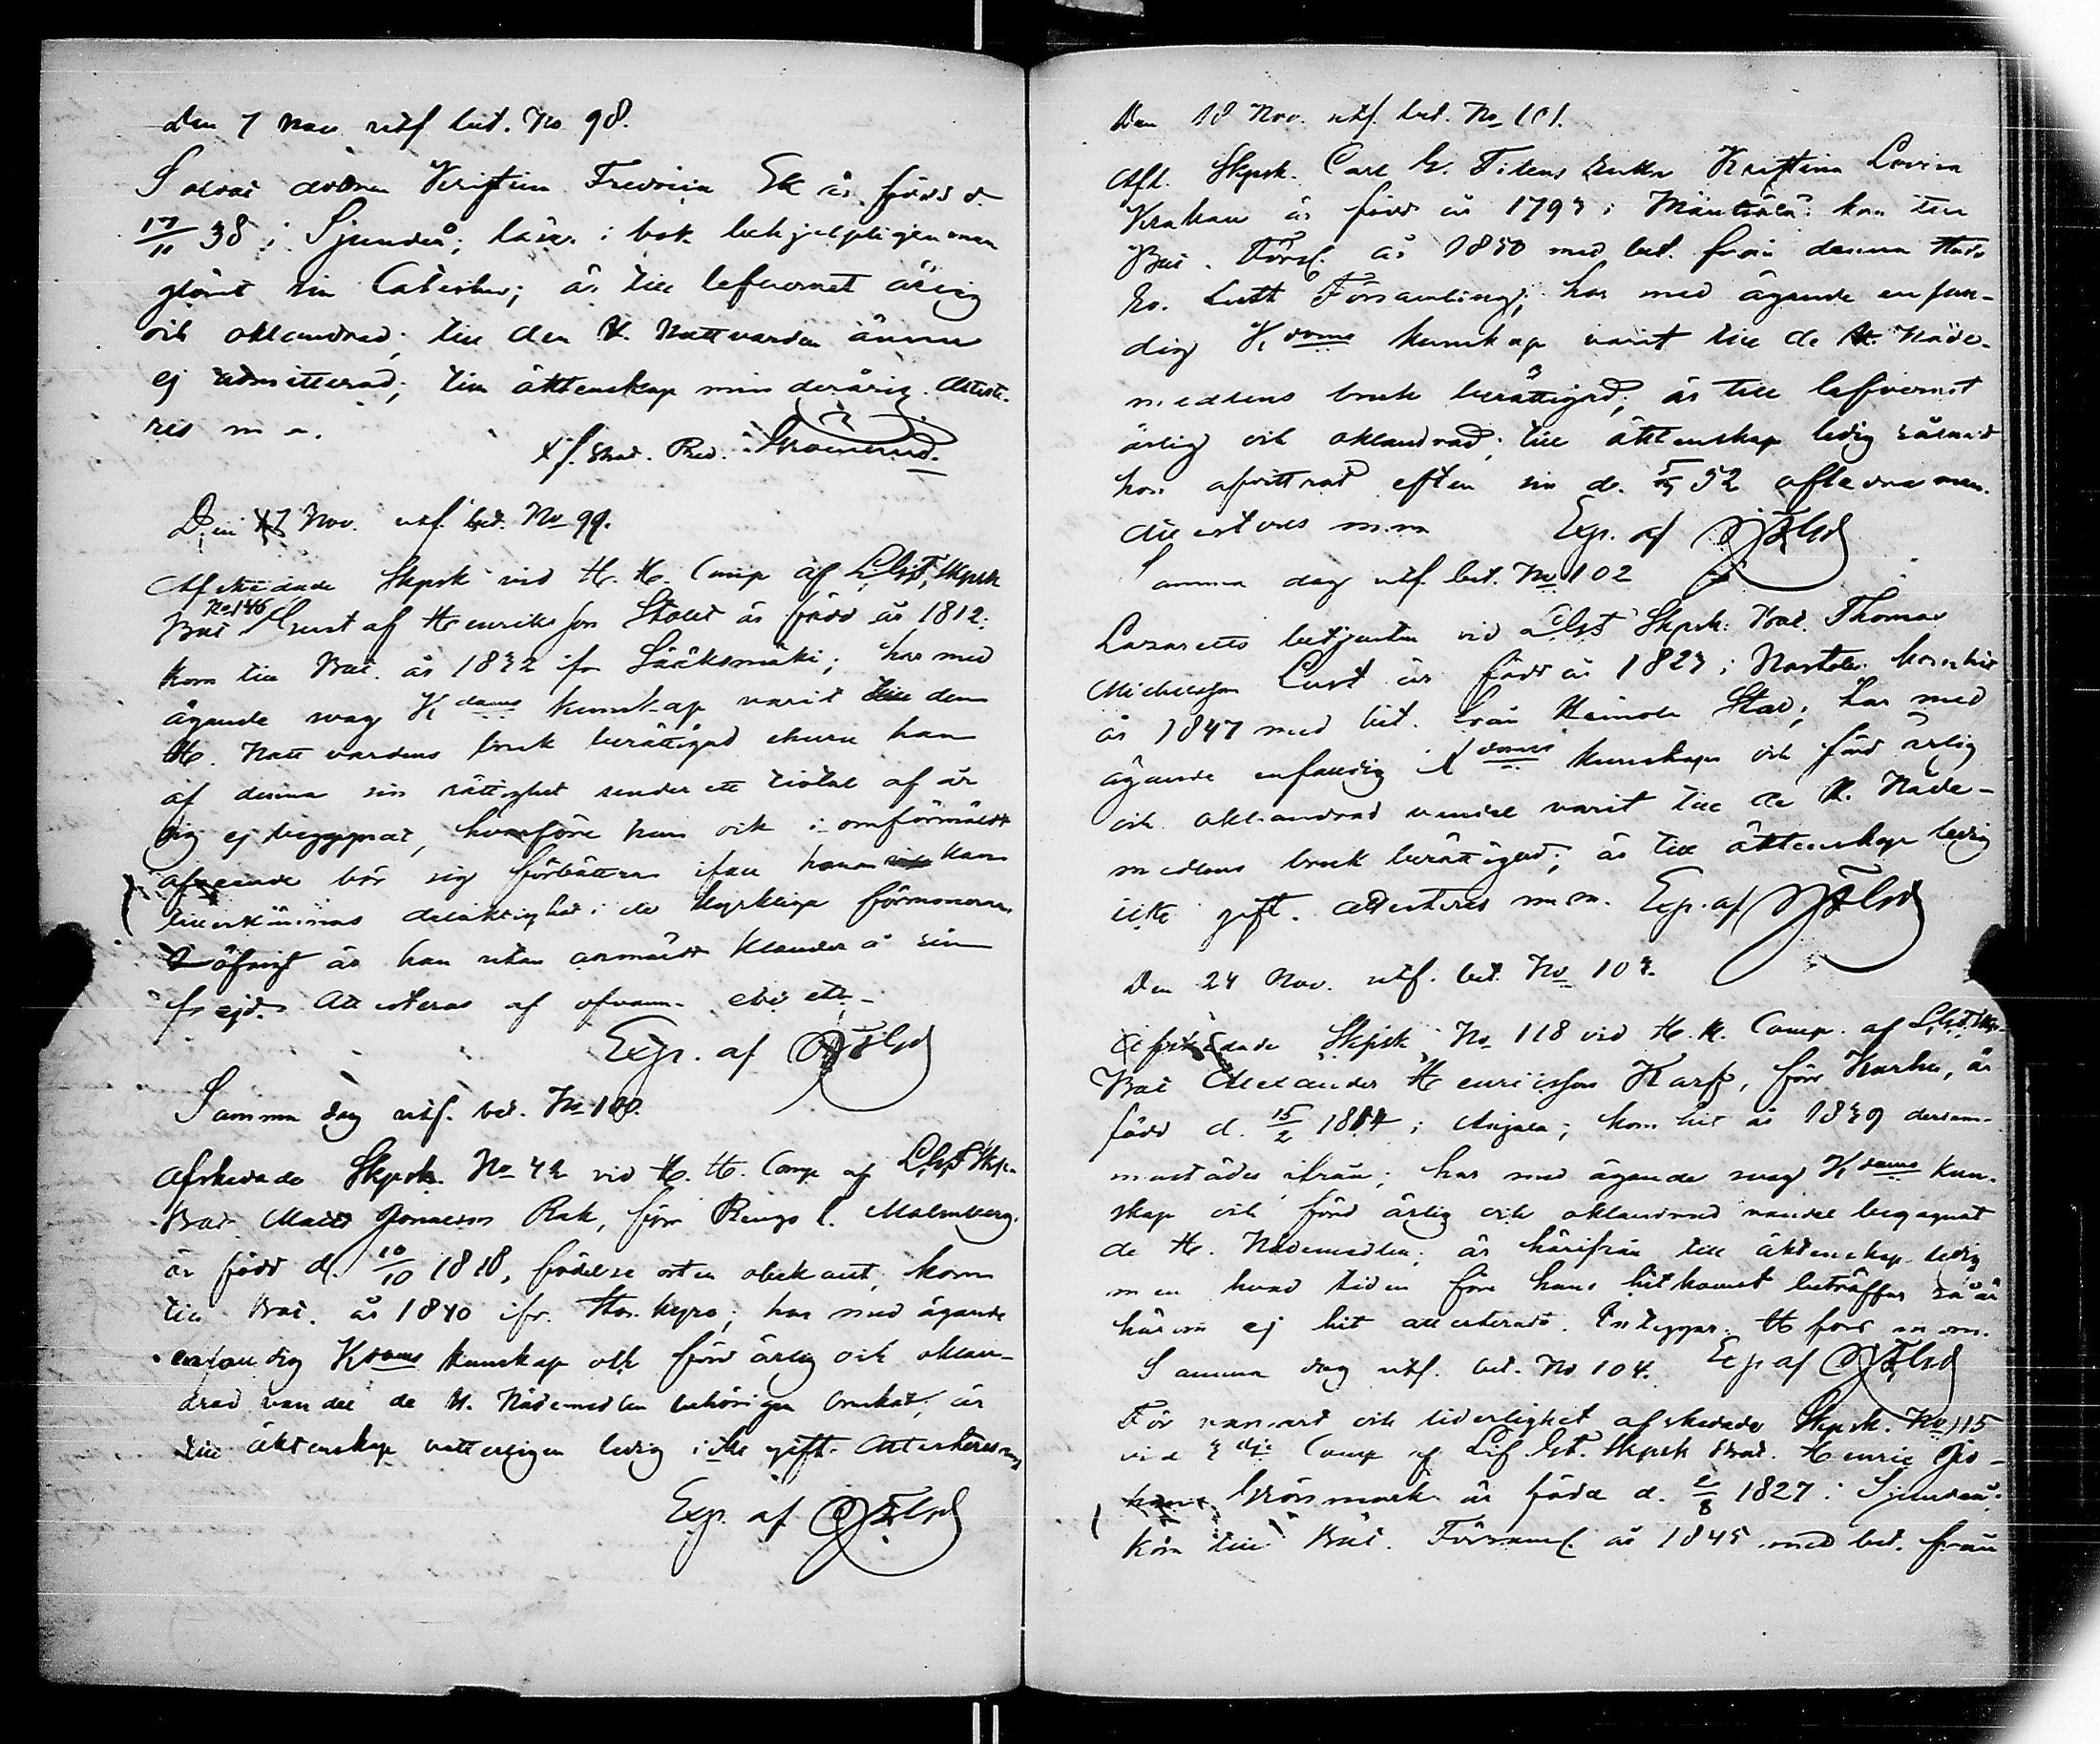 Den 7 Nov utf bet. No 98.
Soldat dottren Kristina Fredrica Ek är född d.
17/11 38 i Sjundeå; läser i bok behjelpligen men
glömt sin Catechis; är till lefvernet ärlig
och oklandrad; till den H. Nattvarden ännu
ej admitterad; till äktenskap minderårig. Atteste-
res m m.
t.f. Bat. Pred.
Den 17 Nov. utf. bet. No 99.
Afskedade Skpsk vid H. H. Comp af L.Gst. Skpsk
No 146
Bat Gustaf Henriksson Stolt är född år 1812:
kom till Bat. år 1832 ifr Sääksmäki; har med
ägande svag Kdoms kunskap varit till den
H. Nattvardens bruk berättigad ehuru han
af denna sin rättighet under ett tiotal af år
sig ej begagnat, hvarföre han ock i omförmäldt
afseende bör sig förbättra ifall honom kan
tillerkännas delaktighet i de kyrkliga förmonerna
öfrigt är han utan anmäldt klander å sin
frejd. Attesteras af ofvann. ebd etc.
Exp. af
Samma dag utf. bet. No 100.
Afskedade Skpsk. No 42 vid H. H. Comp af L.Gst. Skps
Bat. Matts Jonasson Rak, förr Rings l. Malmberg.
är född d. 10/10 1818, födelse orten obekant, kom
till Bat. år 1840 ifr. Storkyro; har med ägande
enfaldig Kdoms kunskap och förd ärlig och oklan-
drad vandel de H. Nådemedlen behörigen brukat; är
till äktenskap vetterligen ledig icke gift. Attesteras m
Exp. af
Den 18 Nov. utf. bet. No 101.
Afl. Skpsk. Carl G. Titens Enka Kristina Lovisa
Krakau är född år 1793 i Mäntsälä: kom till
Bat. Förs. år 1850 med bet. från denna Stads
Ev. Luth Församling; har med ägande enfan-
dig Kdoms kunskap varit till de H. Nåde-
medlens bruk berättigad; är till lefvernet
ärlig och oklandrad; till äktenskap ledig såsnart
hon afvittrat efter sin d. 52 aflidna man.
Attesteres m.m Exp. af
Samma dag utf. bet. No 102
Lazaretts betjenten vid L.Gst Skpsk. Bat. Thomas
Michelsson Lust är född år 1823 i Nastola: kom hit
år 1847 med bet. från Heinola Stad; har med
ägande enfaldig Kdoms kunskap och förd ärlig
och oklandrad vandel varit till de H. Nåde-
medlens bruk berättigad; är till äktenskap ledig
icke gift. Attesteres m.m. Exp. af
Den 24 Nov. utf. bet. No 103.
Afskedade Skpsk No 118 vid H. H. Comp. af L.Gst. Skps
Bat Alexander Henricsson Karp, förr Karhu, är
född d. 15/2 1814 i Anjala; kom hit år 1839 dersam-
mastädes ifrån; har med ägande svag Kdoms kun-
skap och förd ärlig och oklandrad vandel begagnat
de H. Nådemedlen; är härifrån till äktenskap ledig
men hvad tiden före hans hitkomst beträffar så är
härom ej hit attesteradt. H fors m.m.
Samma dag utf. bet. No 104. Exp af
För vanart och liderlighet afskedade Skpsk. No 115
vid 3 dje Comp af Lif Gst. Skpsk Bat. Henric Jo-
han Grönmark är född d. 2/8 1827 i Sjundeå:
kom till Bat. Församl. år 1845 med bet. från